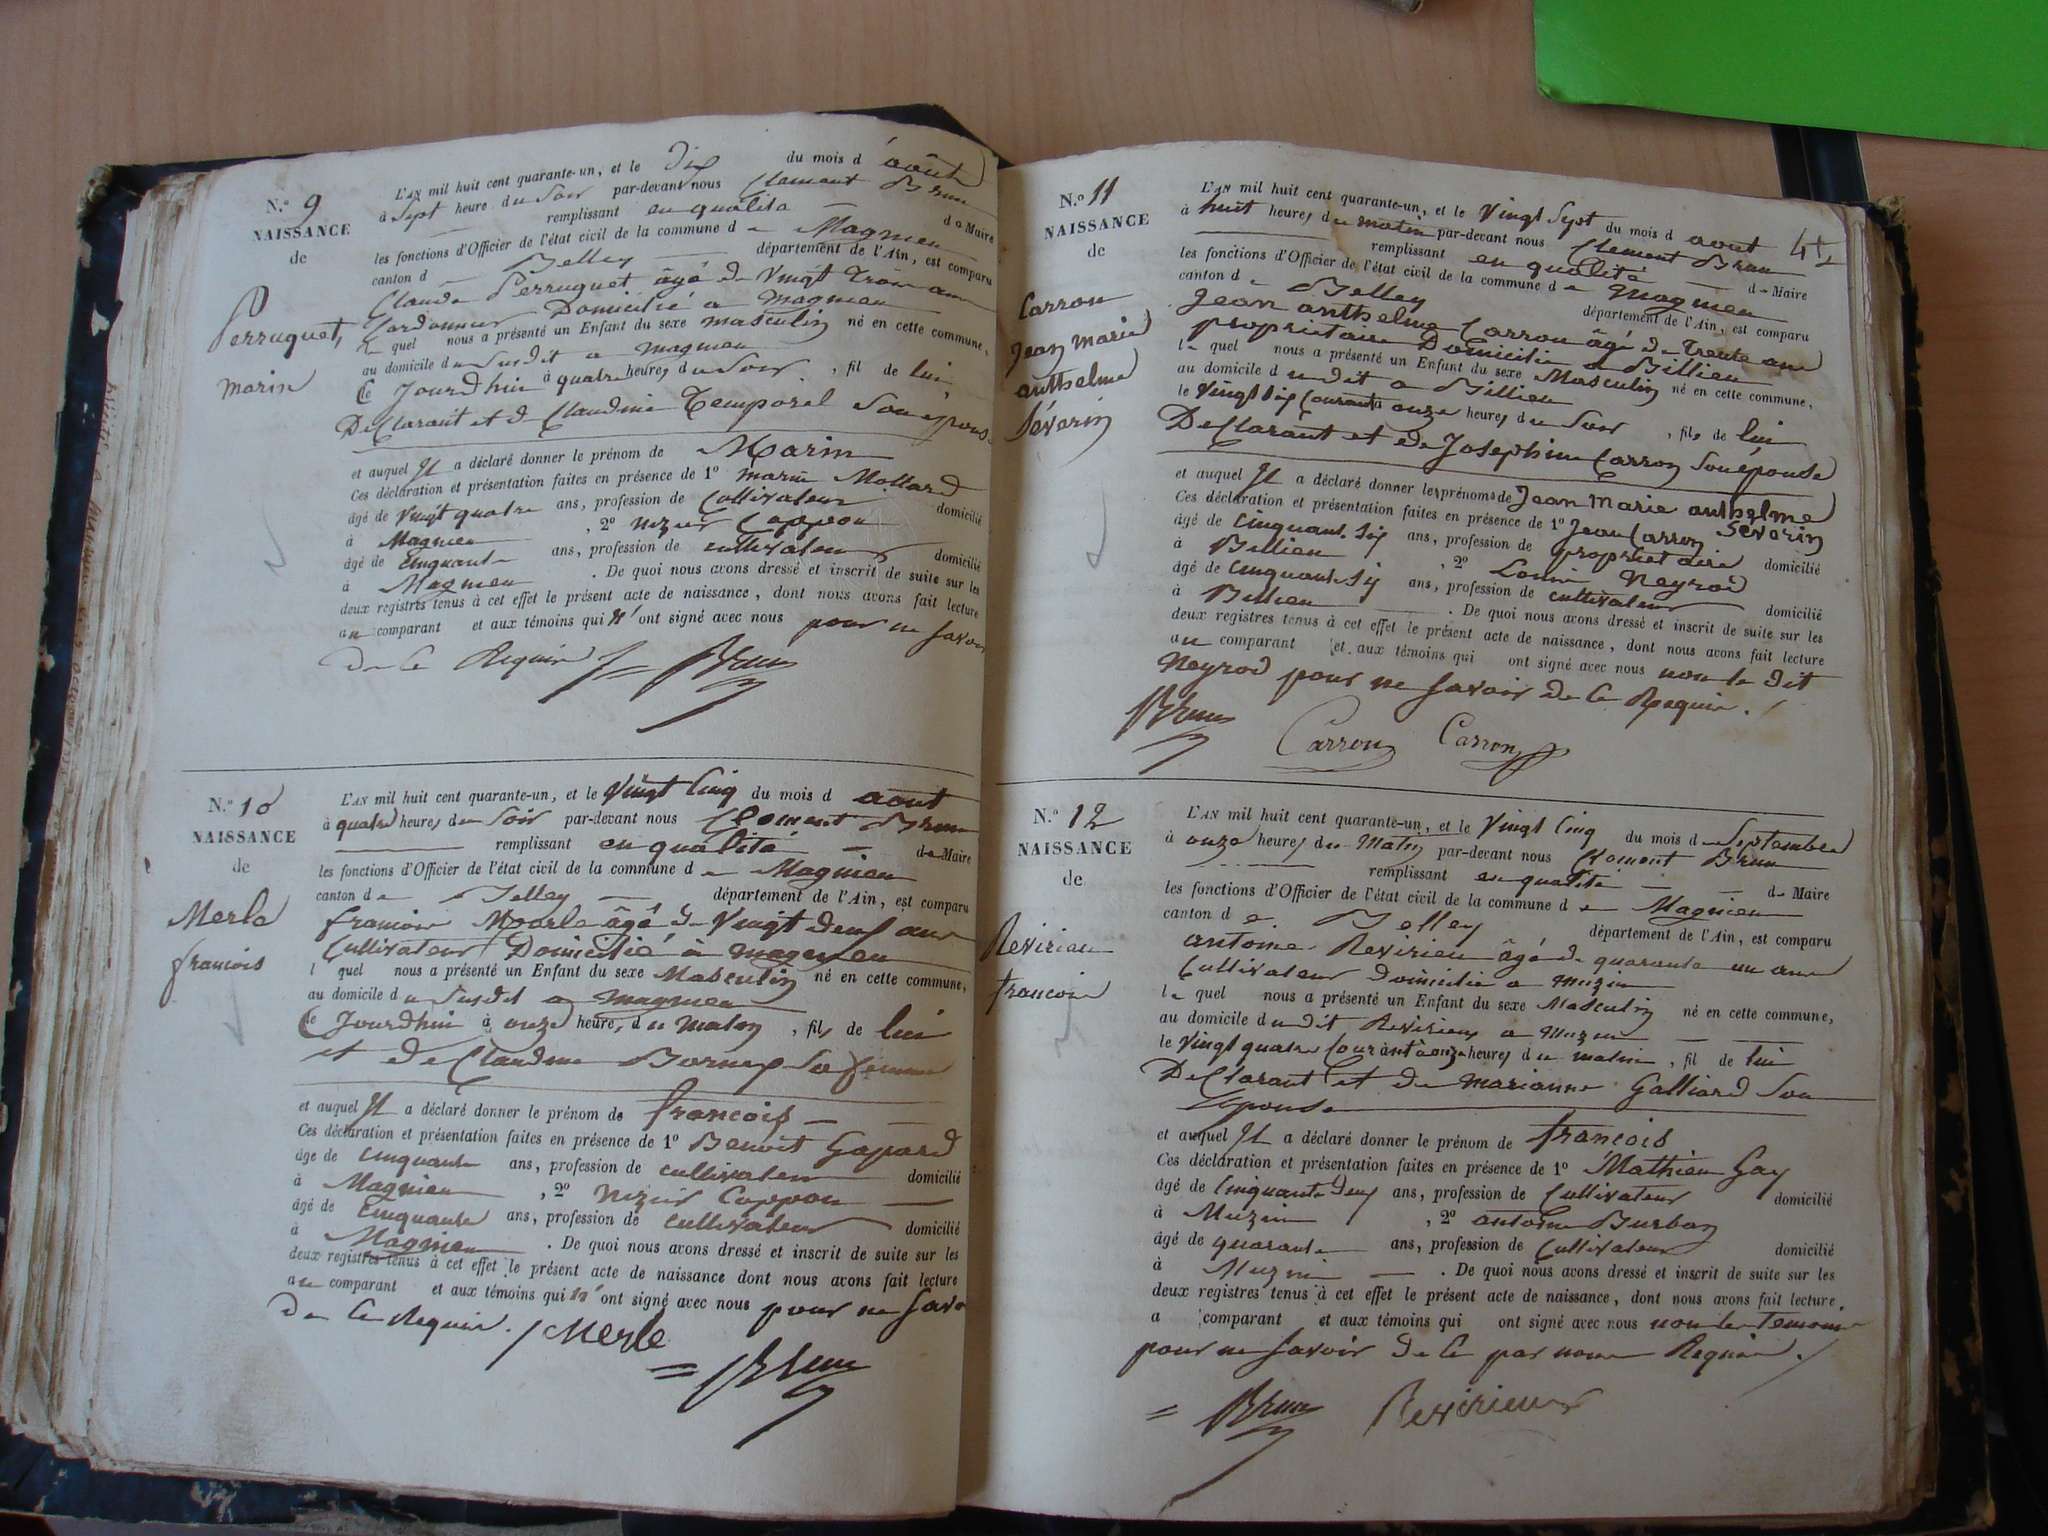 N.º 9
NAISSANCE
de
Perruquet,
marin
L'AN mil huit cent quarante-un, et le dix du mois d août
à Sept heure du Soir par-devant nous Clement Brun
remplissant en qualité de Maire
les fonctions d'Officier de l'état civil de la commune de Magnieu
canton d Belley département de l'Ain, est comparu
Claude Perruquet âgé de Vingt Trois ans
Cordonnier Domicilié a magnieu
l quel nous a présenté un Enfant du sexe masculin né en cette commune,
au domicile du Susdit a magnieu
Ce Jourdhui à quatre heures du Soir, fil de lui
Declarant et d Claudine Temporel Son epouse
et auquel Il a déclaré donner le prénom de Marin
Ces déclaration et présentation faites en présence de 1º marin Mollard
âgé de Vingt quatre ans, profession de Cultivateur domicilié
à Magnieu, 2º nizier Coppon
âgé de Cinquante ans, profession de cultivateur domicilié
à Magnieu. De quoi nous avons dressé et inscrit de suite sur les
deux registres tenus à cet effet le présent acte de naissance, dont nous avons fait lecture
au comparant et aux témoins qui n'ont signé avec nous pour ne Savoir
de Ce Requis Brun
N.º 10
NAISSANCE
de
Merle
francois
L'AN mil huit cent quarante-un, et le Vingt Cinq du mois d aout
à quatre heures du Soir par-devant nous Clement Brun
remplissant en qualité de Maire
les fonctions d'Officier de l'état civil de la commune de Magnieu
canton de Belley département de l'Ain, est comparu
francois Merle âgé de Vingt deux ans
Cultivateur Domicilié à magnieu
l quel nous a présenté un Enfant du sexe Masculin né en cette commune,
au domicile du Susdit a magnieu
Ce Jourdhui à onze heures du Matin, fils de lui
et de Claudine Bornex Sa femme
et auquel Il a déclaré donner le prénom de francois
Ces déclaration et présentation faites en présence de 1º Benoit Gapard
âgé de Cinquante ans, profession de cultivateur domicilié
à Magnieu, 2º nizier Coppon
âgé de Cinquante ans, profession de cultivateur domicilié
à Magnieu. De quoi nous avons dressé et inscrit de suite sur les
deux registres tenus à cet effet le présent acte de naissance dont nous avons fait lecture
au comparant et aux témoins qui n'ont signé avec nous pour ne Savo
de Ce Requis. Merle
Brun
N.º 11
NAISSANCE
de
Carron
Jean Marie
anthelme
Séverin
L'AN mil huit cent quarante-un, et le Vingt Sept du mois d aout
à huit heures du matin par-devant nous Clement Brun
remplissant en qualité de Maire
les fonctions d'Officier de l'état civil de la commune de Magnieu
canton de Belley département de l'Ain, est comparu
Jean anthelme Carron âgé de Trente ans
proprietaire Domicilié a Billieu
le quel nous a présenté un Enfant du sexe Masculin né en cette commune,
au domicile dudit a Billieu
le Vingt Six Courant à onze heures du Soir, fils de lui
Declarant et de Josephine Carron Son épouse
et auquel Il a déclaré donner les prénoms de Jean Marie anthelme
Severin
Ces déclaration et présentation faites en présence de 1º Jean Carron
âgé de Cinquante Six ans, profession de proprietaire domicilié
à Billieu, 2º Louis Neyrod
âgé de Cinquante Six ans, profession de cultivateur domicilié
à Billieu. De quoi nous avons dressé et inscrit de suite sur les
deux registres tenus à cet effet le présent acte de naissance, dont nous avons fait lecture
au comparant et aux témoins qui ont signé avec nous non le dit
Neyrod pour ne Savoir de Ce Requis.
Brun Carron Carron
N.º 12
NAISSANCE
de
Revirieu
francois
L'AN mil huit cent quarante-un, et le Vingt Cinq du mois de Septembre
à onze heures du Matin par-devant nous Clement Brun
remplissant en qualité de Maire
les fonctions d'Officier de l'état civil de la commune de Magnieu
canton de Belley département de l'Ain, est comparu
antoine Revirieu âgé de quarante un ans
Cultivateur Domicilié a Muzin
le quel nous a présenté un Enfant du sexe Masculin né en cette commune,
au domicile dudit Revirieux a Muzin
le Vingt quatre Courant à onze heures du matin, fil de lui
Declarant et de marianne Galliard Son
Epouse
et auquel Il a déclaré donner le prénom de francois
Ces déclaration et présentation faites en présence de 1º Mathieu Gay
âgé de Cinquante Deux ans, profession de Cultivateur domicilié
à Muzin, 2º antoine Burban
âgé de quarante ans, profession de Cultivateur domicilié
à Muzin. De quoi nous avons dressé et inscrit de suite sur les
deux registres tenus à cet effet le présent acte de naissance, dont nous avons fait lecture.
a comparant et aux témoins qui ont signé avec nous non les Temoins
pour ne Savoir de Ce par nous Requis.
Brun Revirieux